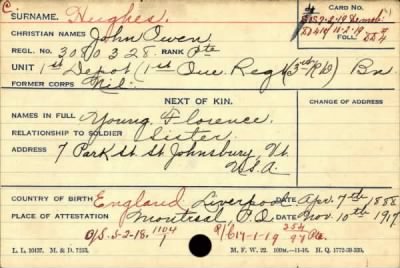 C
SURNAME. Hughes. CARD NO.
CHRISTIAN NAMES John Owen
REGL. NO. 3080328. RANK Pte FOLL.
UNIT 1st Depot (1st Que. Regt) (3rd R'D) Bn
FORMER CORPS Nil.
NEXT OF KIN. CHANGE OF ADDRESS
NAMES IN FULL Young Florence.
RELATIONSHIP TO SOLDIER Sister.
ADDRESS 7 Park St. St Johnsbury, Vt.
U.S.A.
COUNTRY OF BIRTH England Liverpool DATE Apr. 7th 1888
PLACE OF ATTESTATION Montreal, P.Q. DATE Nov. 10th 1917
O/S. 5-2-18. 1104/1
L. L. 10437. M. & D. 7253. M. F. W. 22.